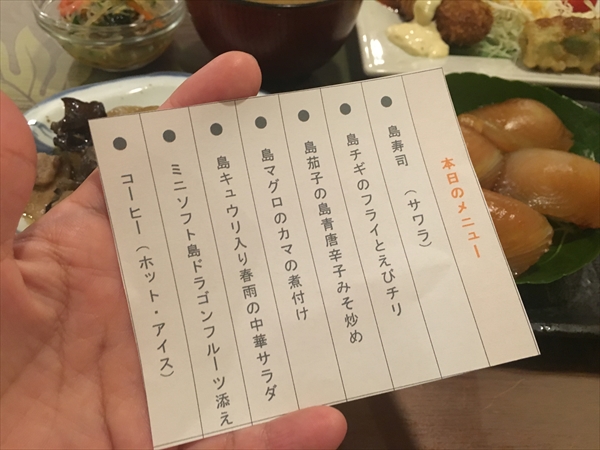 本日のメニュー
● 島寿司 (サワラ)
● 島チギのフライとえびチリ
● 島茄子の島青唐辛子みそ炒め
● 島マグロのカマの煮付け
● 島キュウリ入り春雨の中華サラダ
● ミニソフト島ドラゴンフルーツ添え
● コーヒー (ホット・アイス)